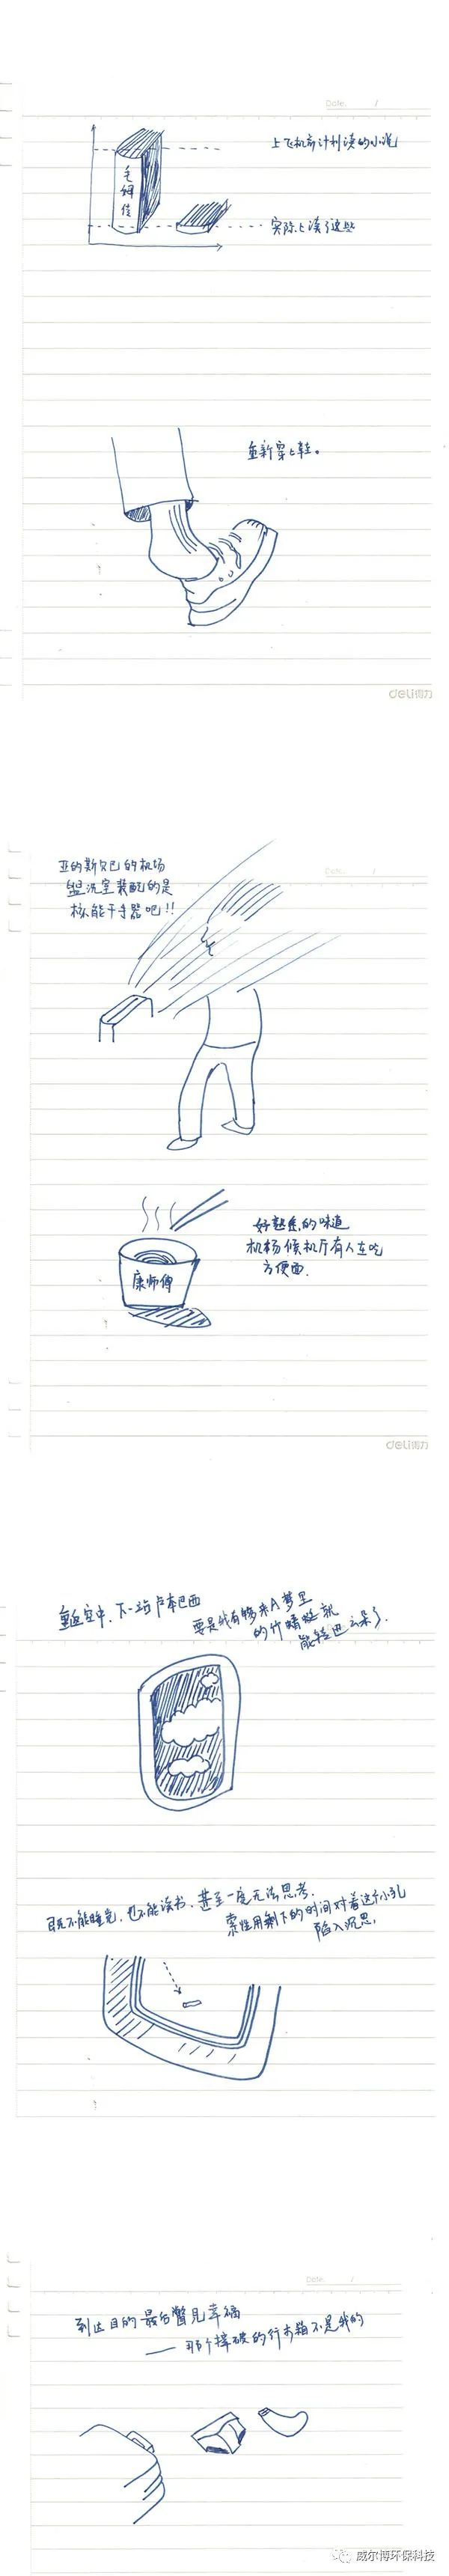 Date. /
上飞机前计划读的小说
毛姆传
实际上读了这些
重新穿上鞋。
deli得力
亚的斯贝巴的机场
盥洗室装配的是
核能干手器吧!!
Date. /
好熟悉的味道
机场候机厅有人在吃
方便面.
康师傅
deli得力
重返空中,下一站卢本巴西
要是我有哆来A梦里
的竹蜻蜓就
能轻进云朵了.
既不能睡觉,也不能读书,甚至一度无法思考.
索性用剩下的时间对着这个小孔
陷入沉思,
Date. /
到达目的 最后瞥见幸福
——那个摔破的行李箱不是我的
威尔博环保科技